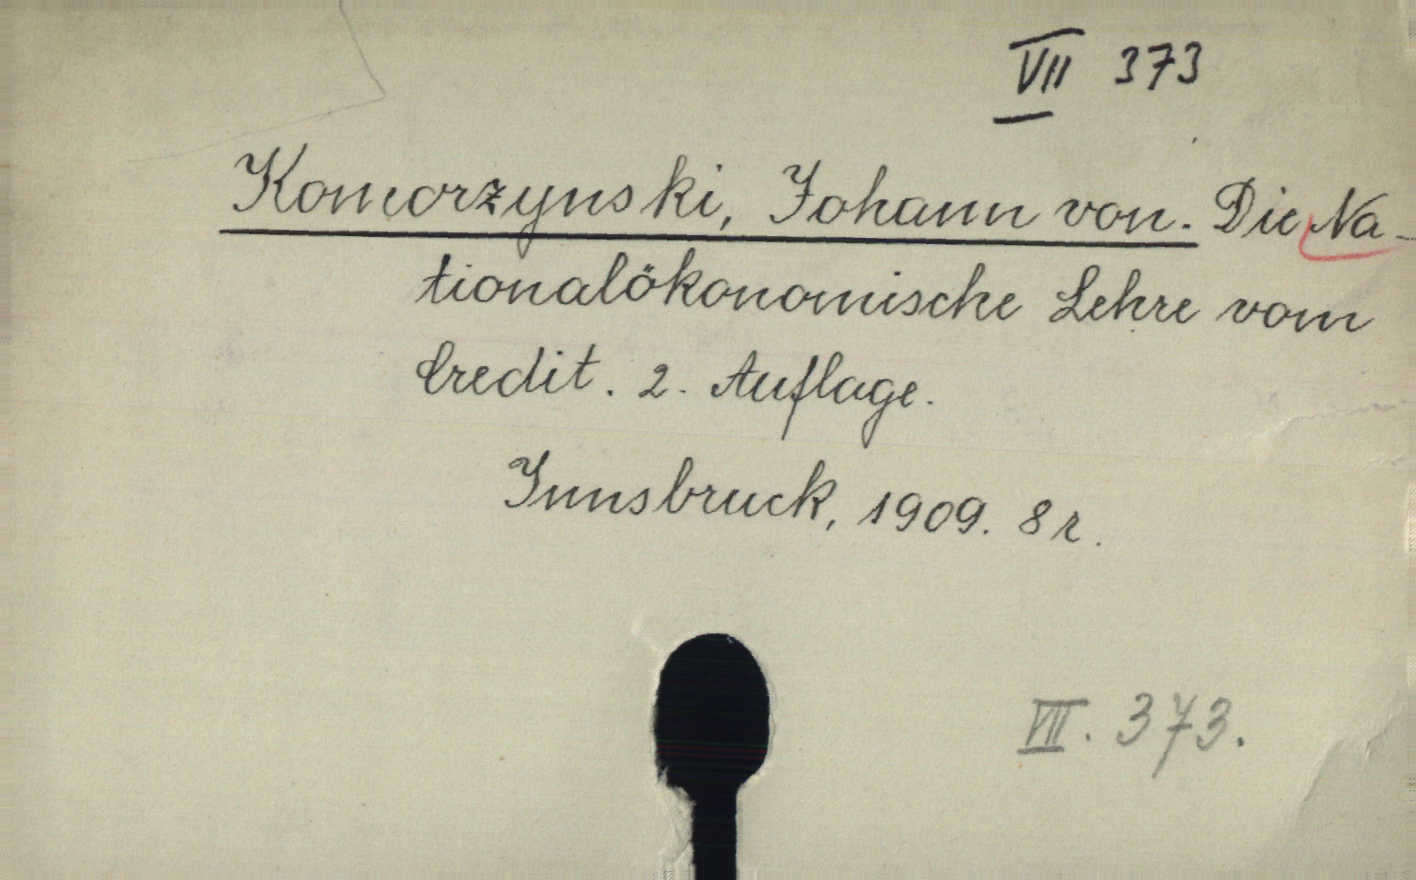 VII 373
Komorzynski, Johann von. Die Na-
tionalökonomische Lehre vom
Credit. 2. Auflage.
Innsbruck, 1909. 8r.
VII. 373.